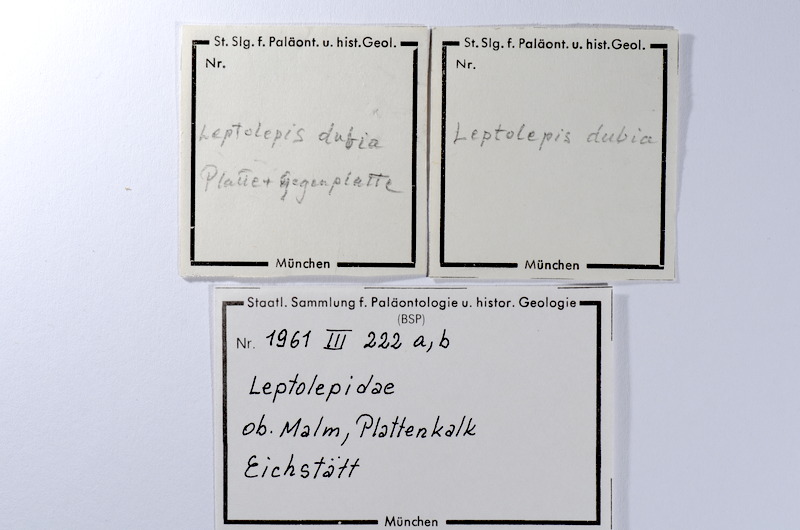 St. Slg. f. Paläont. u. hist. Geol.
Nr.
Leptolepis dubia
Platte + Gegenplatte
München
St. Slg. f. Paläont. u. hist. Geol.
Nr.
Leptolepis dubia
München
Staatl. Sammlung f. Paläontologie u. histor. Geologie
(BSP)
Nr. 1961 III 222 a, b
Leptolepidae
ob. Malm, Plattenkalk
Eichstätt
München